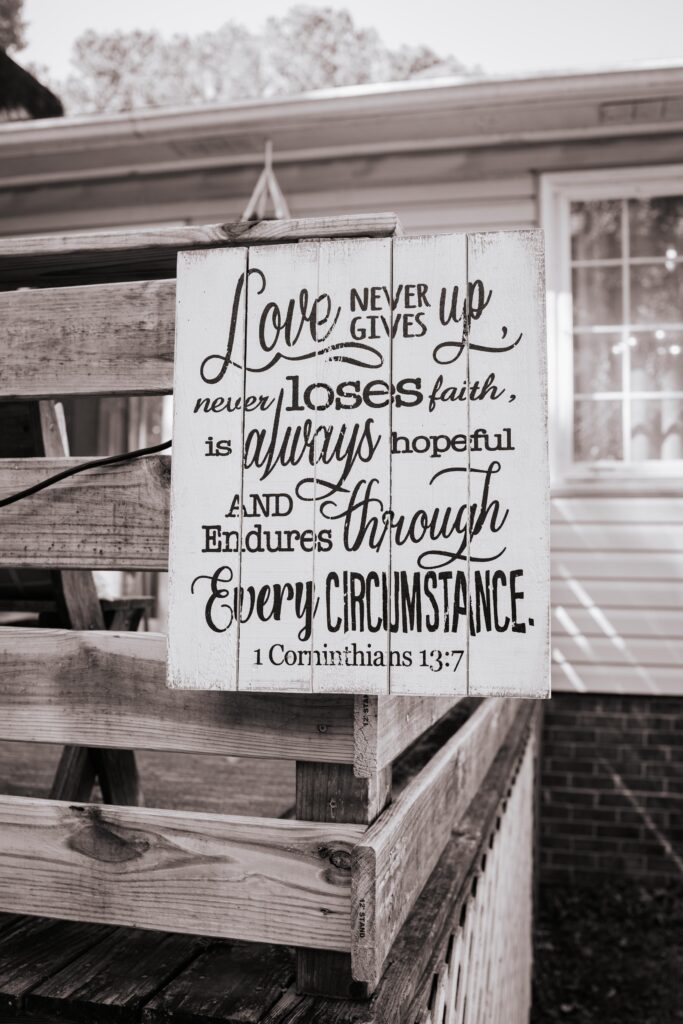 Love NEVER GIVES up,
never loses faith,
is always hopeful
AND
Endures through
Every CIRCUMSTANCE.
1 Corninthians 13:7
12" STAND
12" STAND